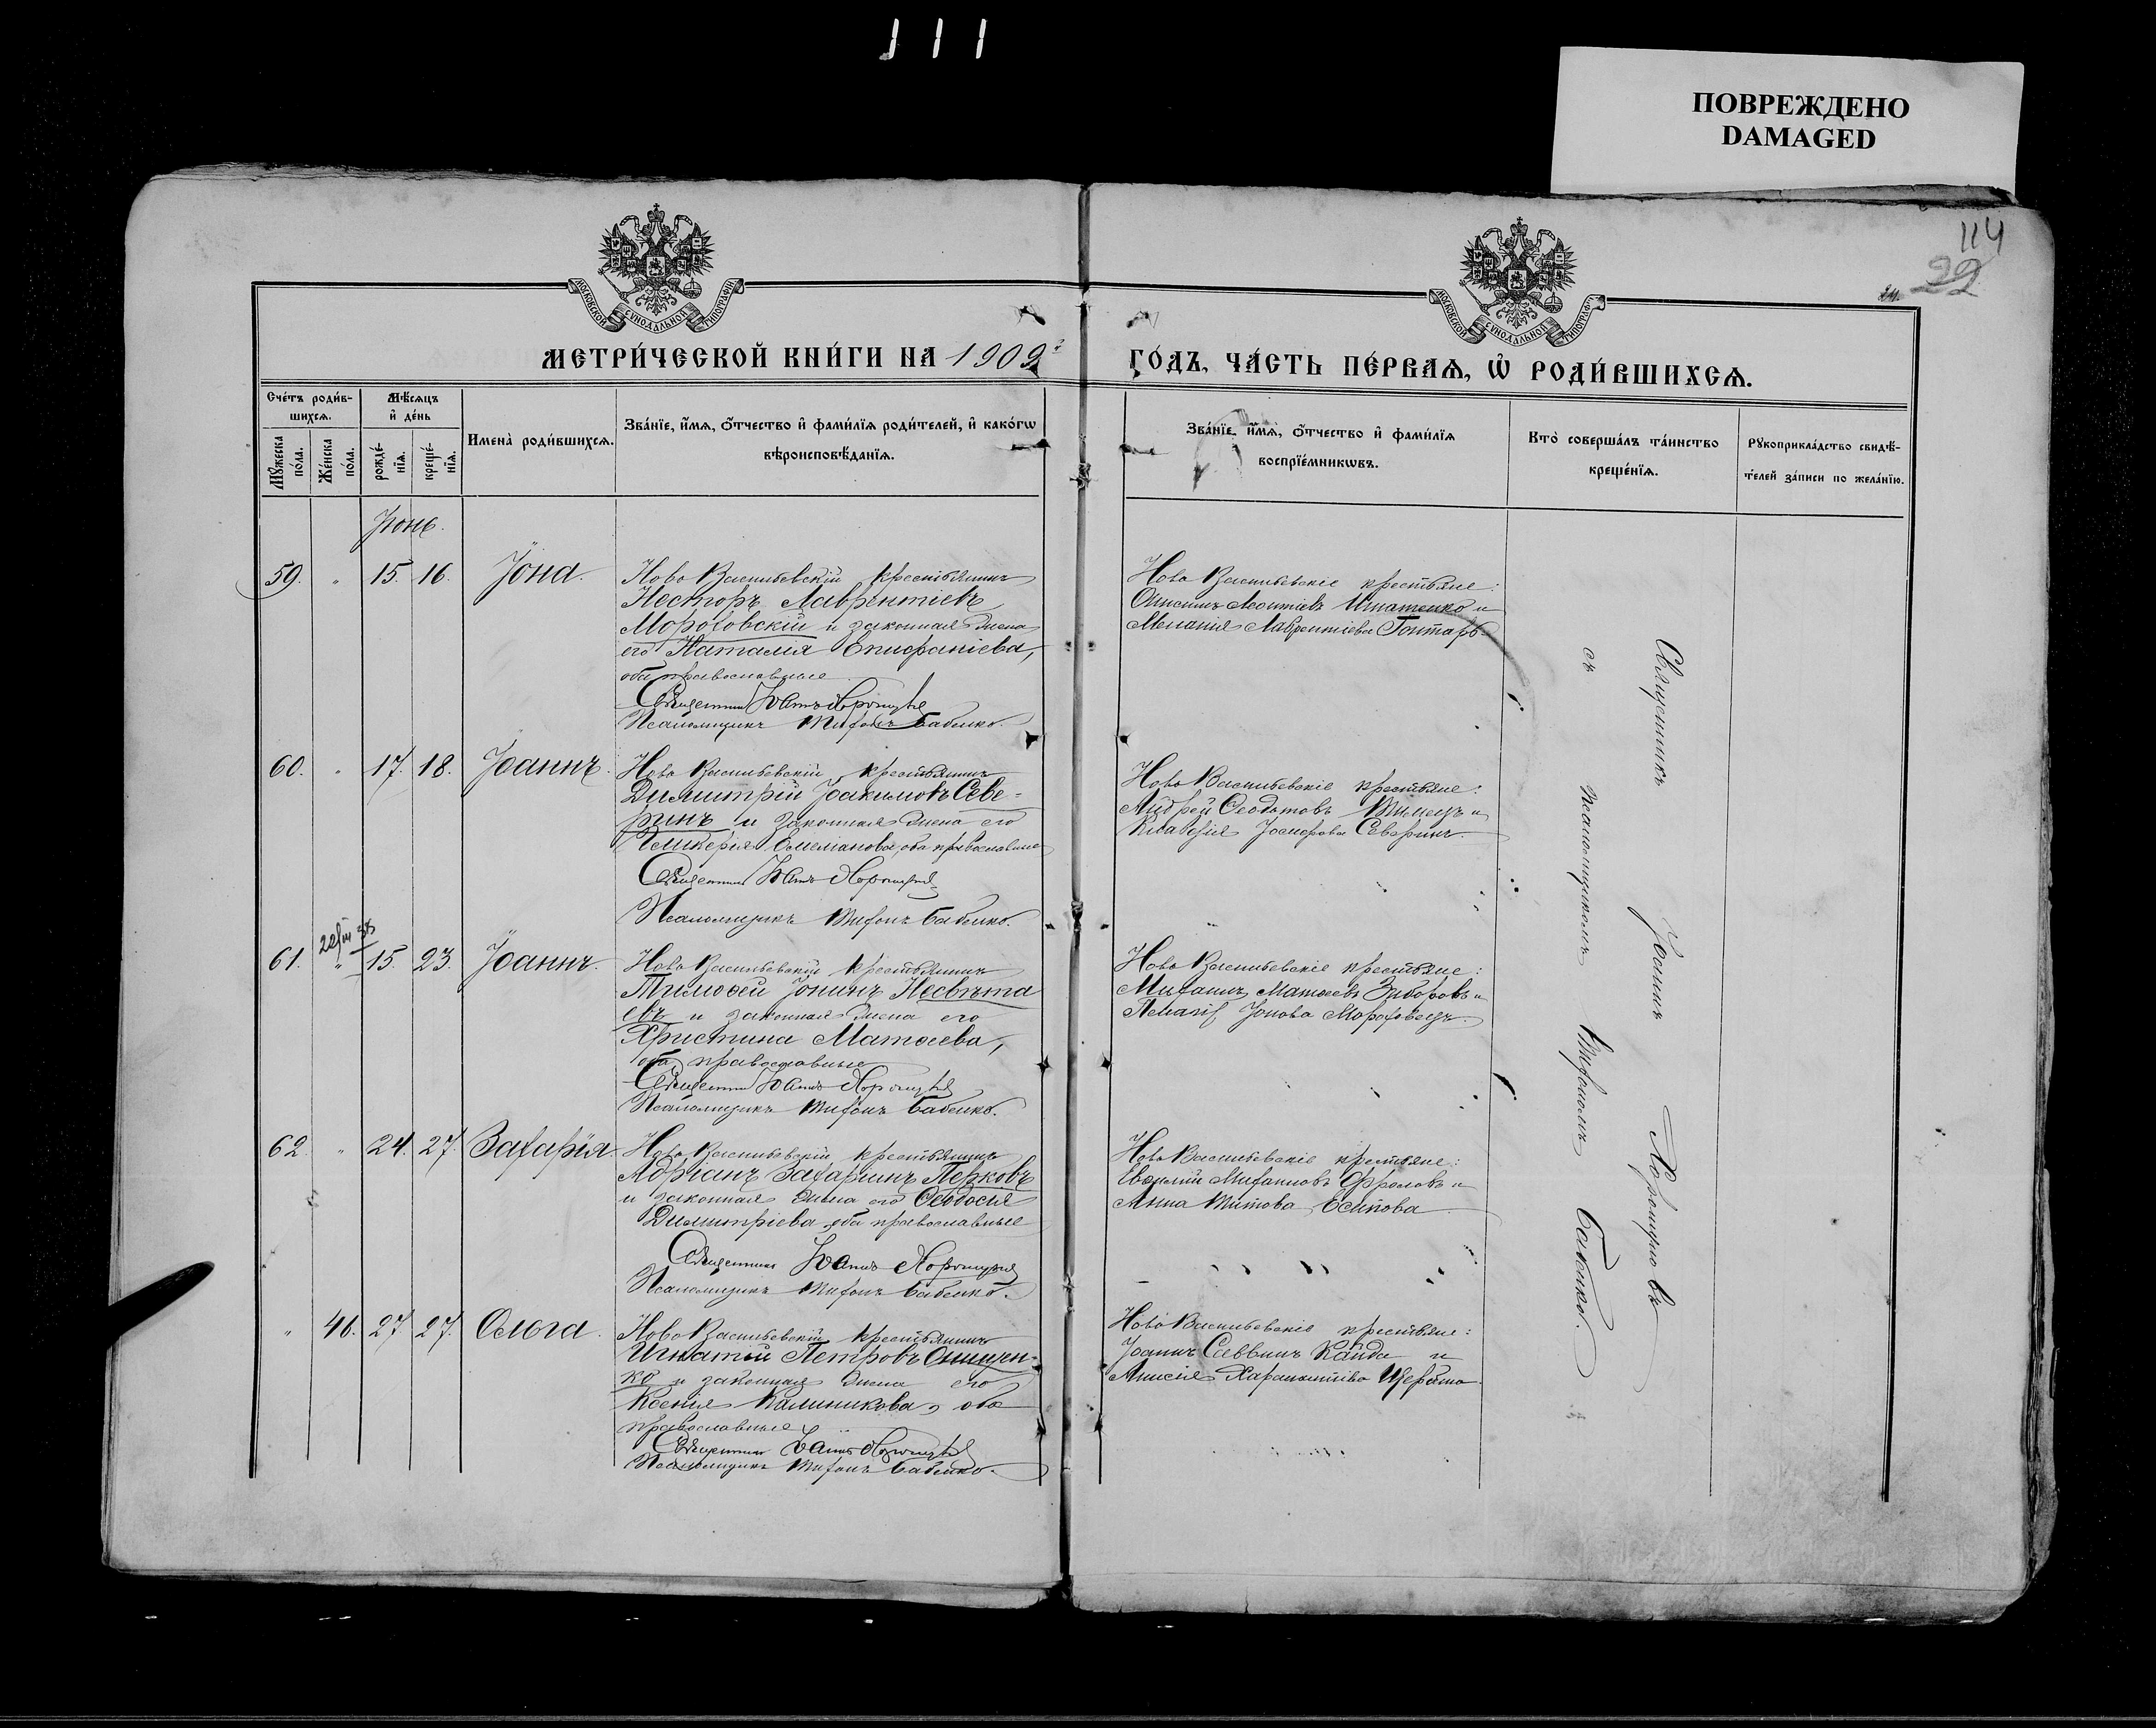 111
ПОВРЕЖДЕНО
DAMAGED
114
22
МОСКОВСКОЙ СѴНОДАЛЬНОЙ ТИПОГРАФІИ
МОСКОВСКОЙ СѴНОДАЛЬНОЙ ТИПОГРАФІИ
МЕТРИ́ЧЕСКОЙ КНИ́ГИ НА 1909
ГО́ДЪ, ЧА́СТЬ ПЕ́РВАѦ, Ѡ҆ РОДИ́ВШИХСѦ.
Сче́тъ роди́в-
шихсѧ.
Мꙋ́жеска по́ла.
Же́нска по́ла.
Мѣ́сѧцъ
и҆ де́нь
рожде́-нїѧ.
креще́-нїѧ.
Имена̀ роди́вшихсѧ.
Зва́нїе, и҆́мѧ, ѻ҆́тчество и҆ фами́лїѧ роди́телей, и҆ како́гѡ
вѣроисповѣ́данїѧ.
Зва́нїе, и҆́мѧ, ѻ҆́тчество и҆ фами́лїѧ
воспрїе́мникѡвъ.
Кто̀ соверша́лъ та́инство
креще́нїѧ.
Рꙋкоприкла́дство свидѣ́-
телей за́писи по жела́нїю.
Іюнь.
59. " 15. 16. Іона.
Ново Васильевскій крестьянинъ
Несторъ Лаврентіевъ
Мороговскій и законная жена
его Наталія Епифаніева,
оба православные
Священникъ Іоаннъ
Псаломщикъ Тихонъ Бабенко.
Ново Васильевскіе крестьяне:
Леонтіевъ Игнатенко и
Меланія Лаврентіева Гонтарь.
60. " 17. 18. Іоаннъ.
Ново Васильевскій крестьянинъ
Димитрій Іоакимовъ Севе-
ринъ и законная жена его
Гликерія Емеліанова, оба православные
Священникъ Іоаннъ
Псаломщикъ Тихонъ Бабенко.
Ново Васильевскіе крестьяне:
Андрей Феодотовъ и
Клавдія Северинъ.
61. " 15. 23. Іоаннъ.
Ново Васильевскій крестьянинъ
Тимофей Іонинъ Несвѣта
евъ и законная жена его
Христина Матфеева,
оба православные
Священникъ Іоаннъ
Псаломщикъ Тихонъ Бабенко.
Ново Васильевскіе крестьяне:
Михаилъ Матфеевъ и
Пелагія Іонова
62. " 24. 27. Захарія.
Ново Васильевскій крестьянинъ
Адріанъ Захаринъ Перковъ
и законная жена его Феодосія
Димитріева, оба православные
Священникъ Іоаннъ
Псаломщикъ Тихонъ Бабенко.
Ново Васильевскіе крестьяне:
Евфимій Михаиловъ Фроловъ и
Анна Титова Осипова
" 46. 27. 27. Ольга.
Ново Васильевскій крестьянинъ
Игнатій Петровъ Онищен-
ко и законная жена его
Ксенія Калиникова, оба
православные
Священникъ Іоаннъ
Псаломщикъ Тихонъ Бабенко.
Ново Васильевскіе крестьяне:
Іоаннъ Саввинъ Кайда и
Анисія Щербина.
Священникъ Іоаннъ
съ псаломщикомъ Тихономъ Бабенко.